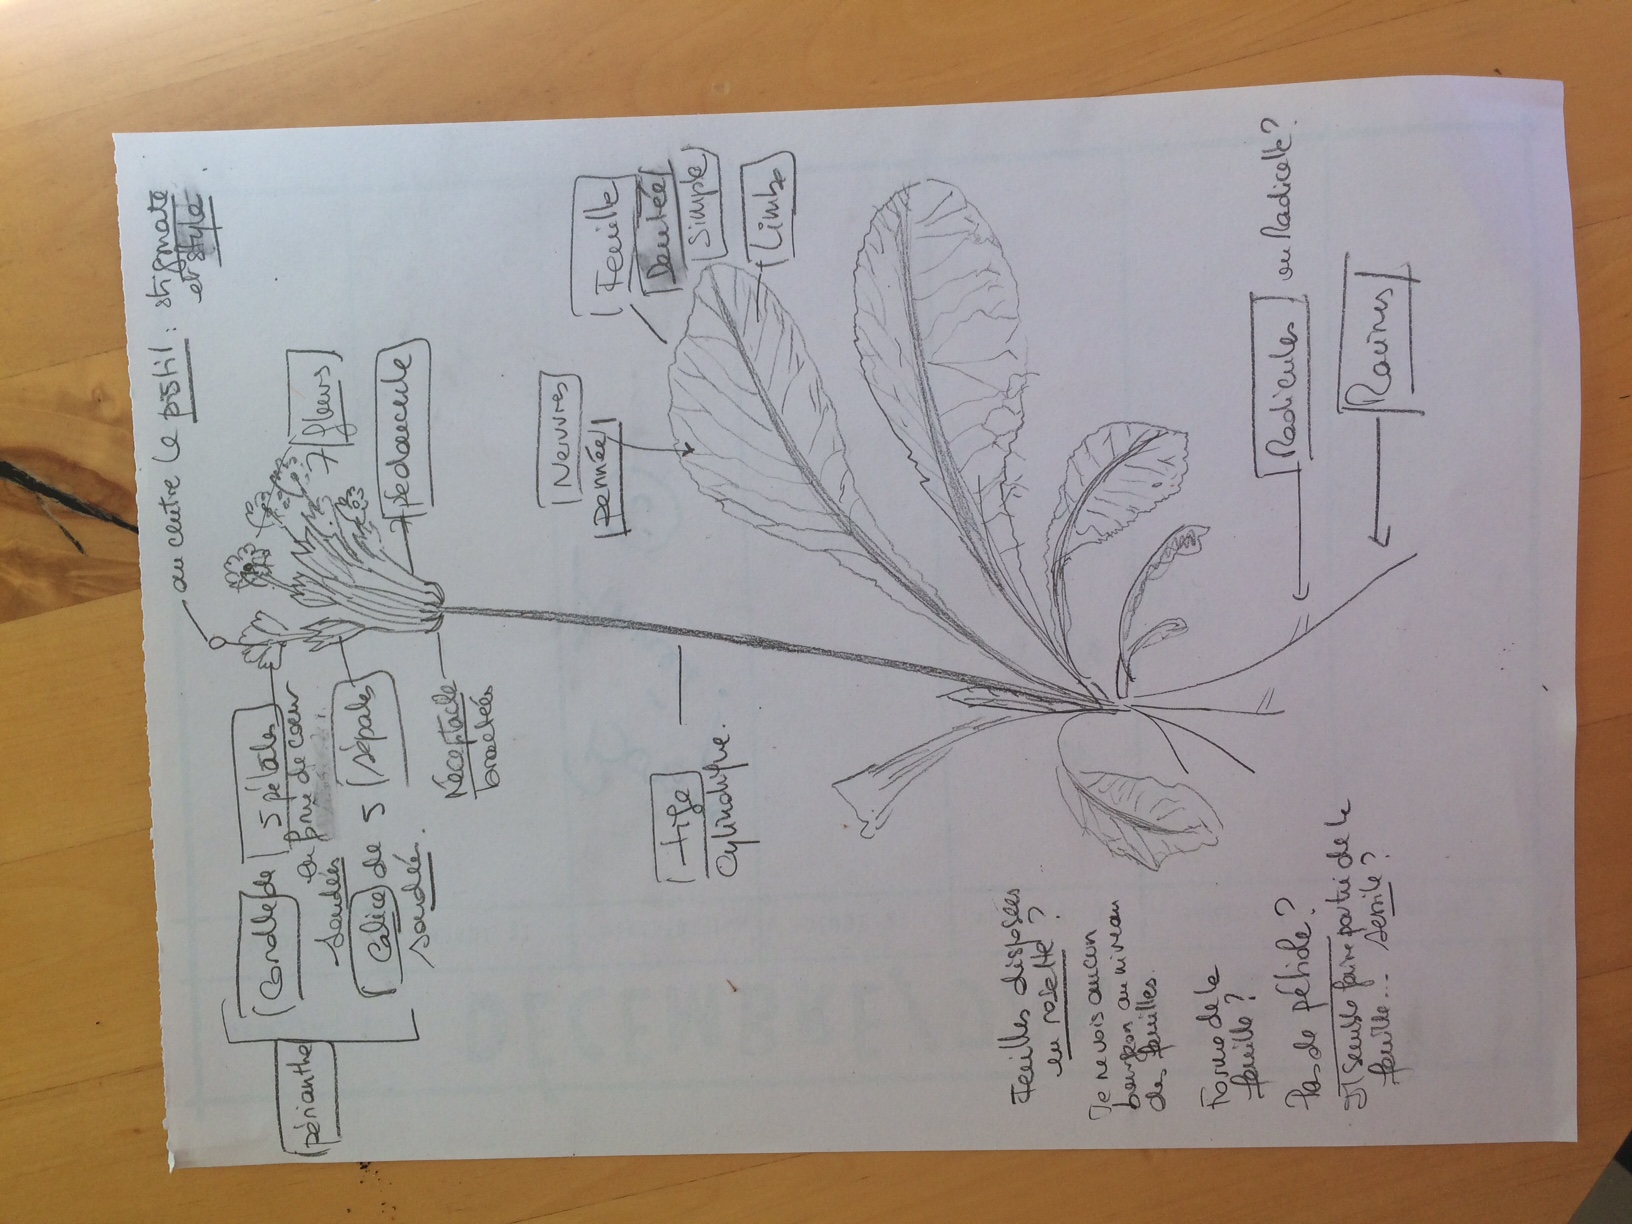 au centre le pistil : stigmate
et style
Corolle de 5 pétales
en forme de coeur
soudés
périanthe
Calice de 5 sépales
soudés.
fleurs
Pédoncule
Réceptacle
bractées
Feuille
Dentée
Simple
Limbe
Nervures
pennées
Tige
Cylindrique.
Feuilles disposées
en rosette ?
Je ne vois aucun
bourgeon au niveau
des feuilles.
Forme de la
feuille ?
Pas de pétiole ?
Il semble faire partie de la
feuille... sessile ?
Radicules ou Radicelle ?
Racines